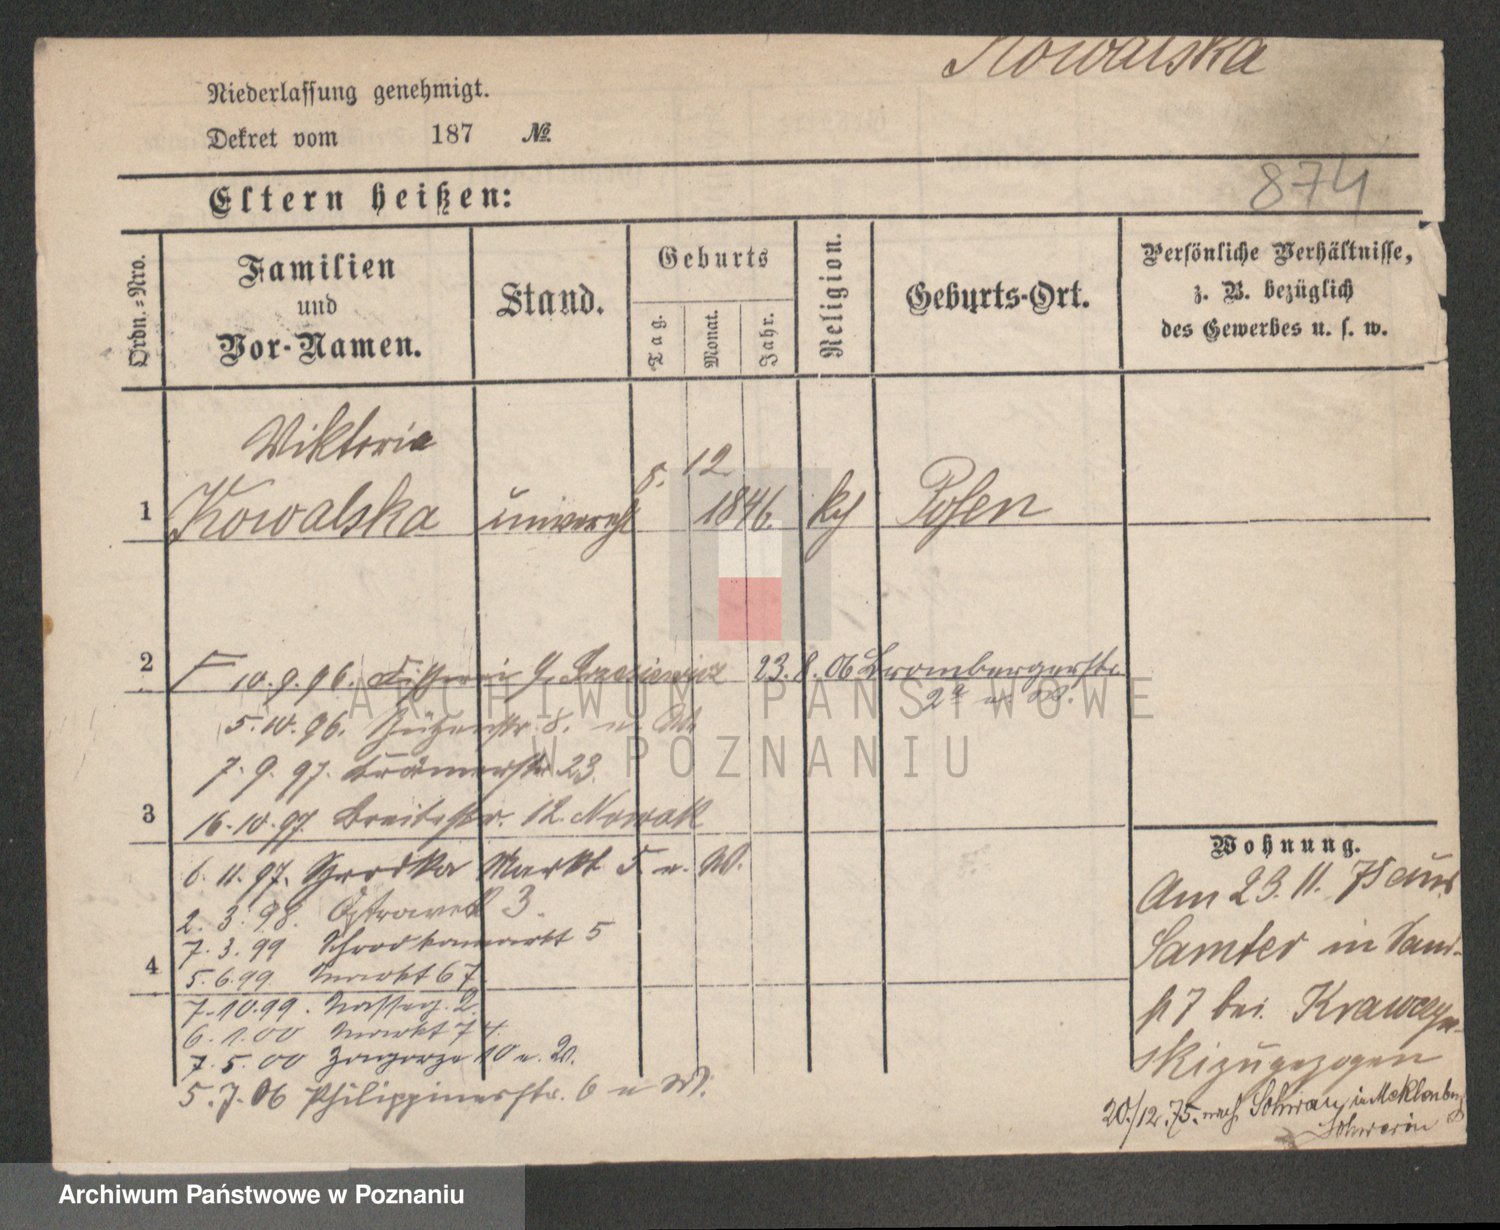 Kowalska
Niederlassung genehmigt.
Dekret vom 187 №
874
Eltern heißen:
Ordn.-Nro.
Familien
und
Vor-Namen.
Stand.
Geburts
Tag.
Monat.
Jahr.
Religion.
Geburts-Ort.
Persönliche Verhältnisse,
z. B. bezüglich
des Gewerbes u. s. w.
Viktoria
1 Kowalska unvereh 5. 12 1846. kth Posen
2 10.9.96. 23.8.06 Brombergerstr
2a u. W.
5.10.96. Schützenstr. 8. u.
7.9.97. Krämerstr. 23
3 16.10.97. Breitestr. 12. Nowak
6.11.97. Markt 5 u. W.
2.3.98. Ostrowek 3.
7.3.99 5
4 5.6.99 Markt 67
7.10.99. Nasseg. 2.
6.1.00 Markt 74.
7.5.00 Zagorze 10 u. W.
5.7.06 Philippinenstr. 6 u W.
Wohnung.
Am 23.11.75 aus
Samter in Sand-
str 7 bei Krawczyn-
ski zugezogen
20./12.75. nach Schwan in Meklenburg
Schwerin
ARCHIWUM PAŃSTWOWE
W POZNANIU
Archiwum Państwowe w Poznaniu